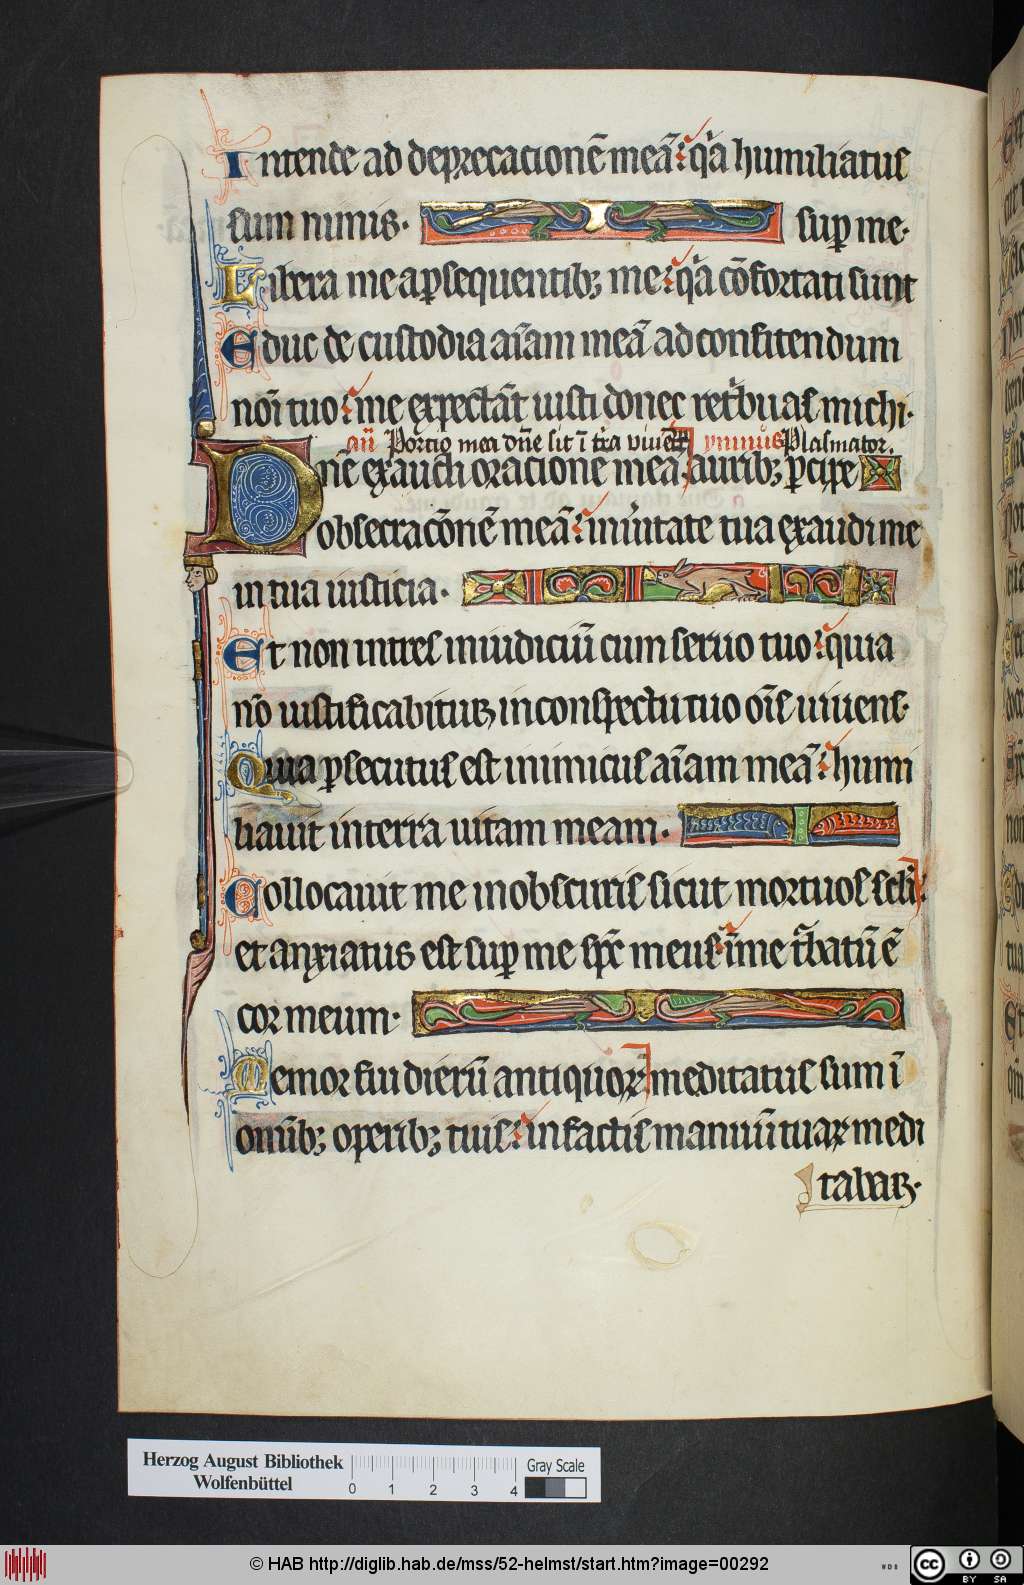 Intende ad deprecacionē meā: q̇a humiliatus
sum nimis. sup̱ me.
Libera me a p̱sequentibꝫ me: q̇a cōfortati sunt
Educ de custodia aīam meā ad confitendum
noī tuo: me expectāt iusti donec ret̓buas michi.
añ Portio mea dñe sit ī t̓ra viuē ymnus Plasmator.
Dñe exaudi oracionē meā auribꝫ p̱cipe
obsecracōnē meā: in ueritate tua exaudi me
in tua iusticia.
Et non intres in iudiciū cum seruo tuo: quia
nō iustificabitur in conspectu tuo oīs uiuens.
Quia p̱secutus est inimicus aīam meā: humi
liauit in terra uitam meam.
Collocauit me in obscuris sicut mortuos scłi:
et anxiatus est sup̱ me sp̄c meus: ī me t̓batū ē
cor meum.
Memor fui dierū antiquoꝝ meditatus sum ī
omībꝫ operibꝫ tuis: in factis manuū tuaꝝ medi
tabar.
Herzog August Bibliothek
Wolfenbüttel
0 1 2 3 4
Gray Scale
© HAB http://diglib.hab.de/mss/52-helmst/start.htm?image=00292
WDB
CC BY SA